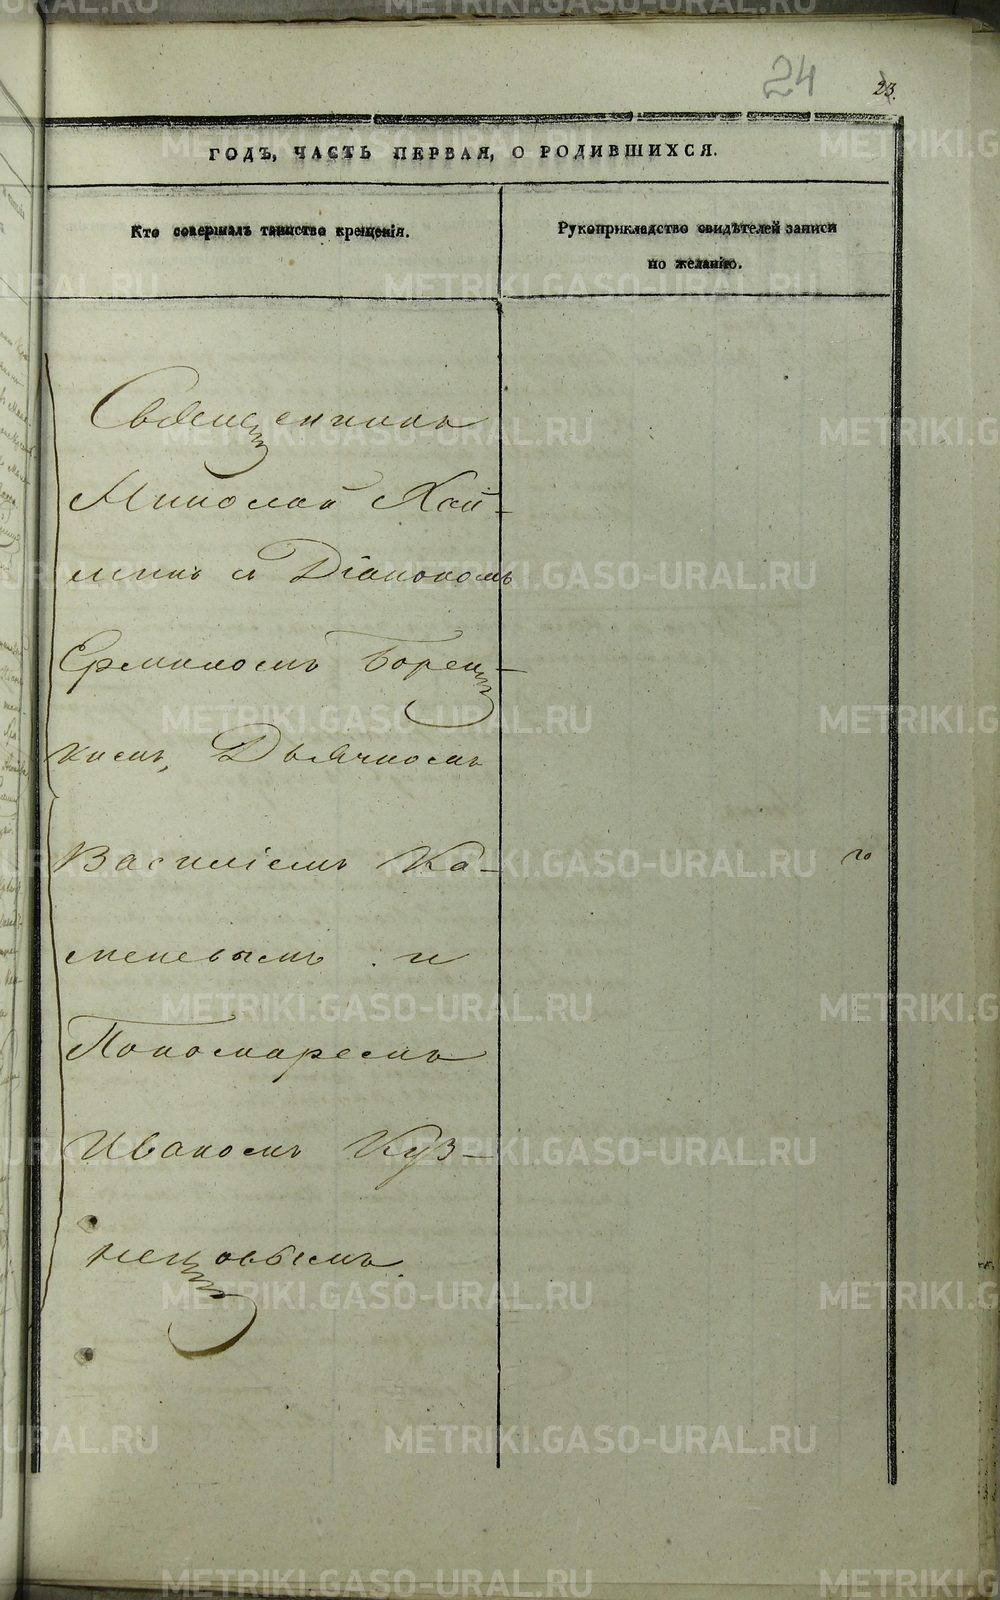 24
23.
ГОДЪ, ЧАСТЬ ПЕРВАЯ, О РОДИВШИХСЯ.
Кто совершалъ таинство крещенія.
Рукоприкладство свидѣтелей записи
по желанію.
Священникъ
Николай Хай-
минъ съ Діакономъ
Ермиломъ Борец-
кимъ, Дьячкомъ
Василіемъ Ка-
меневымъ и
Пономаремъ
Иваномъ Куз-
нецовымъ.
METRIKI.GASO-URAL.RU